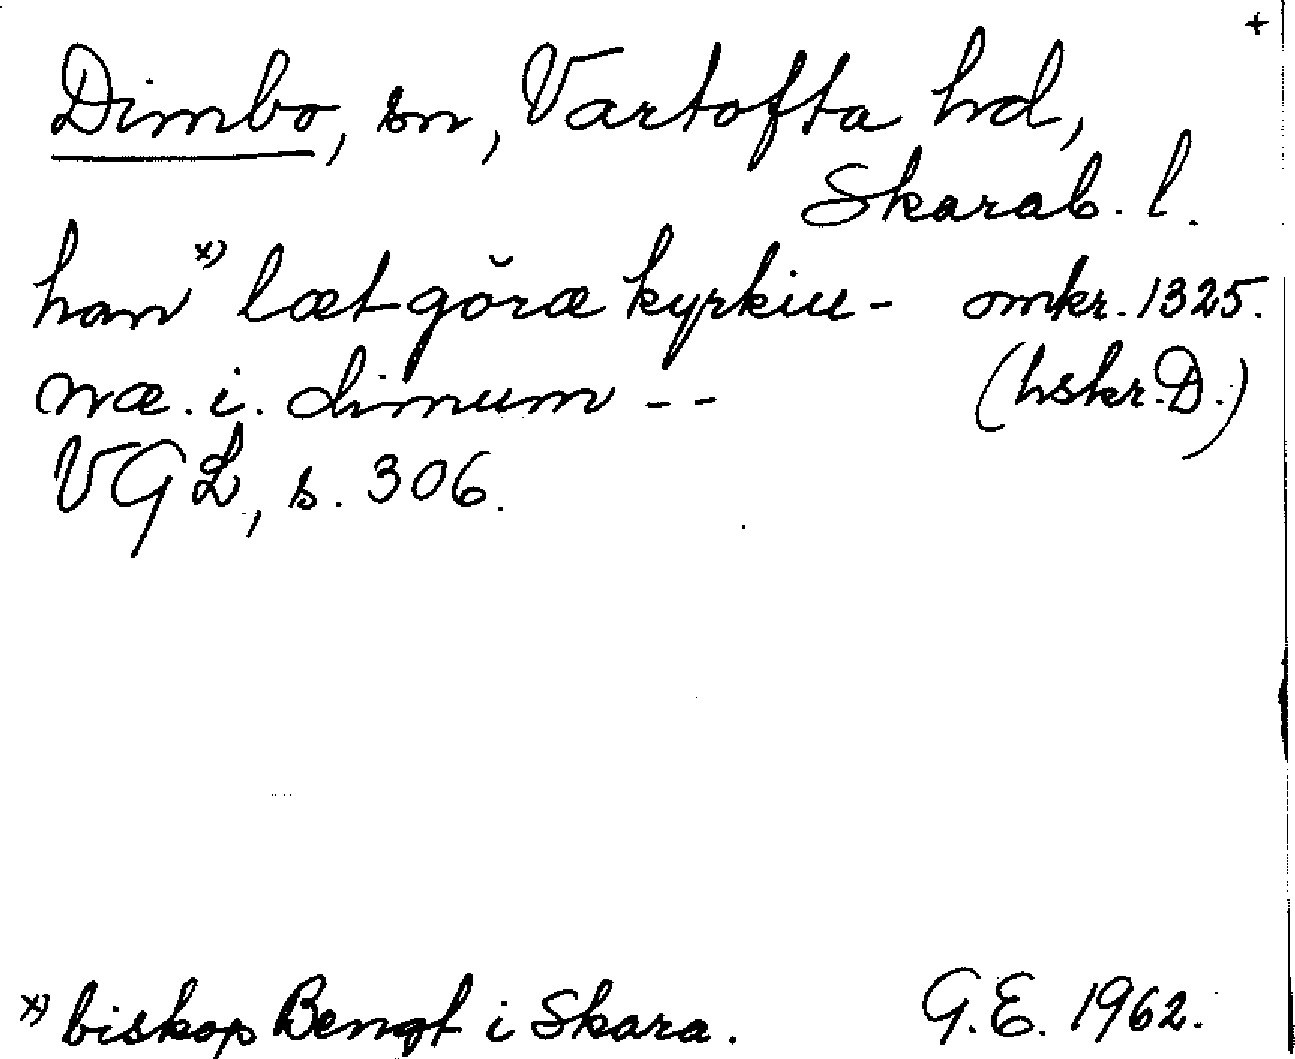 +
Dimbo, sn, Vartofta hd,
Skarab. l.
han x) læt göræ kyrkiu- omkr. 1325.
næ. i. dimum -- (hskr. D.)
VGL, s. 306.
x) biskop Bengt i Skara. G.E. 1962.